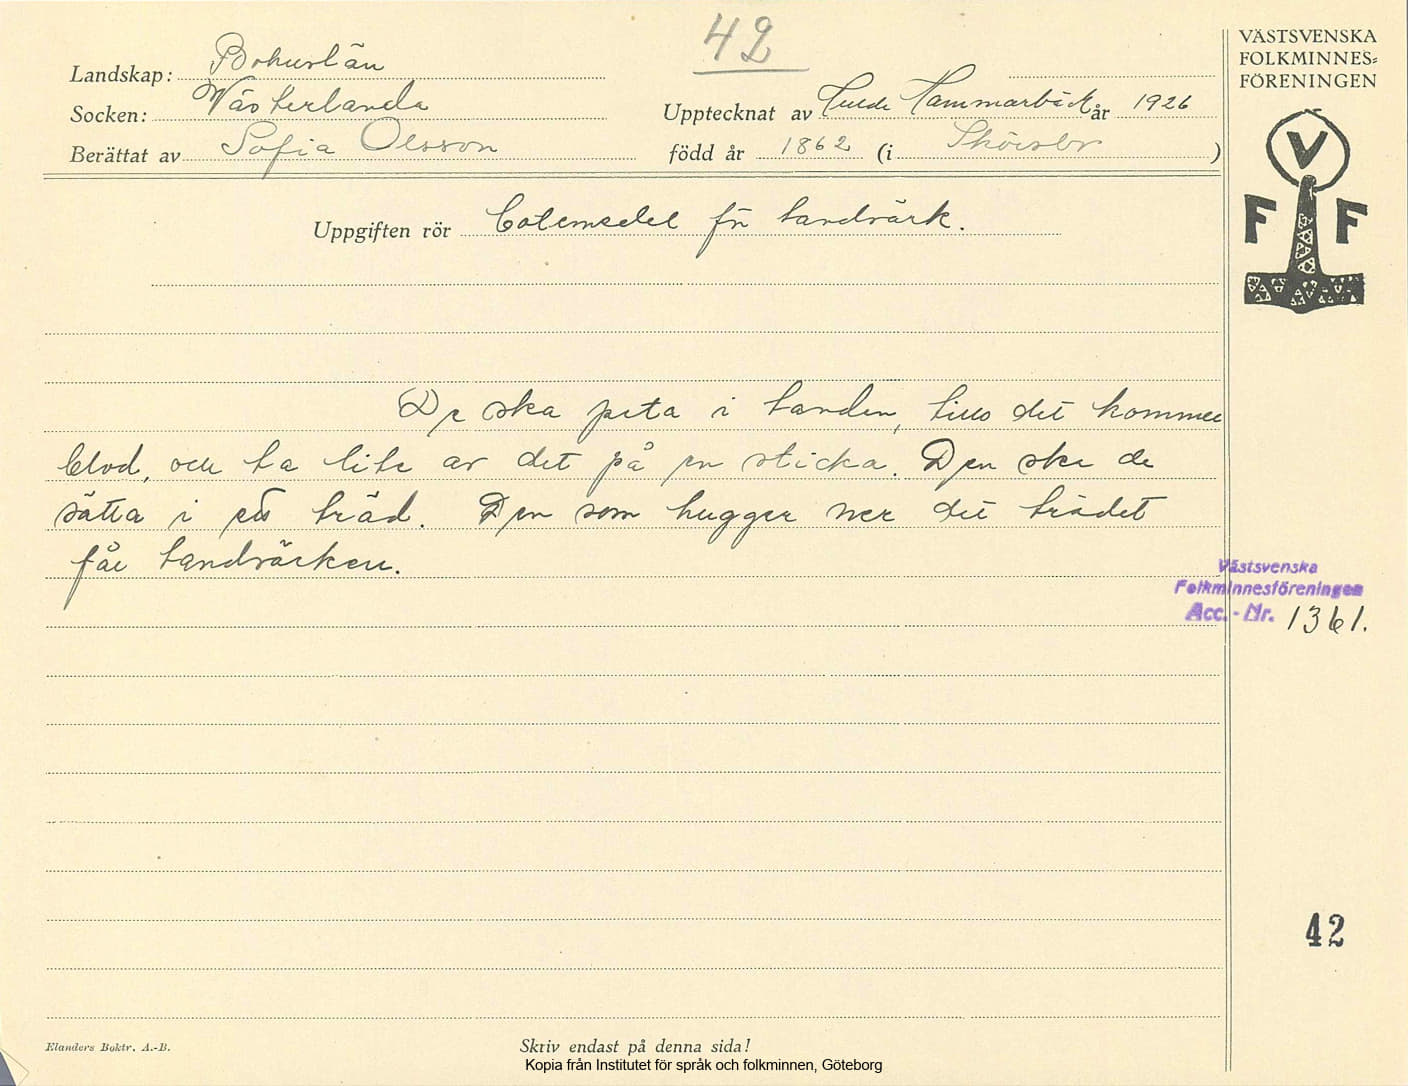 42
VÄSTSVENSKA
FOLKMINNES=
FÖRENINGEN
Landskap: Bohuslän
Socken: Västerlanda
Upptecknat av Tulde Hammarbäck år 1926
Berättat av Sofia Olsson
född år 1862 (i Skörsbo)
V
F F
Uppgiften rör Botemedel för tandvärk.
De ska peta i tanden, tills det kommer
blod, och ta lite av det på en sticka. Den ska de
sätta i ett träd. Den som hugger ner det trädet
får tandvärken.
Västsvenska
Folkminnesföreningen
Acc.-Nr. 1361.
42
Elanders Boktr. A.-B.
Skriv endast på denna sida!
Kopia från Institutet för språk och folkminnen, Göteborg